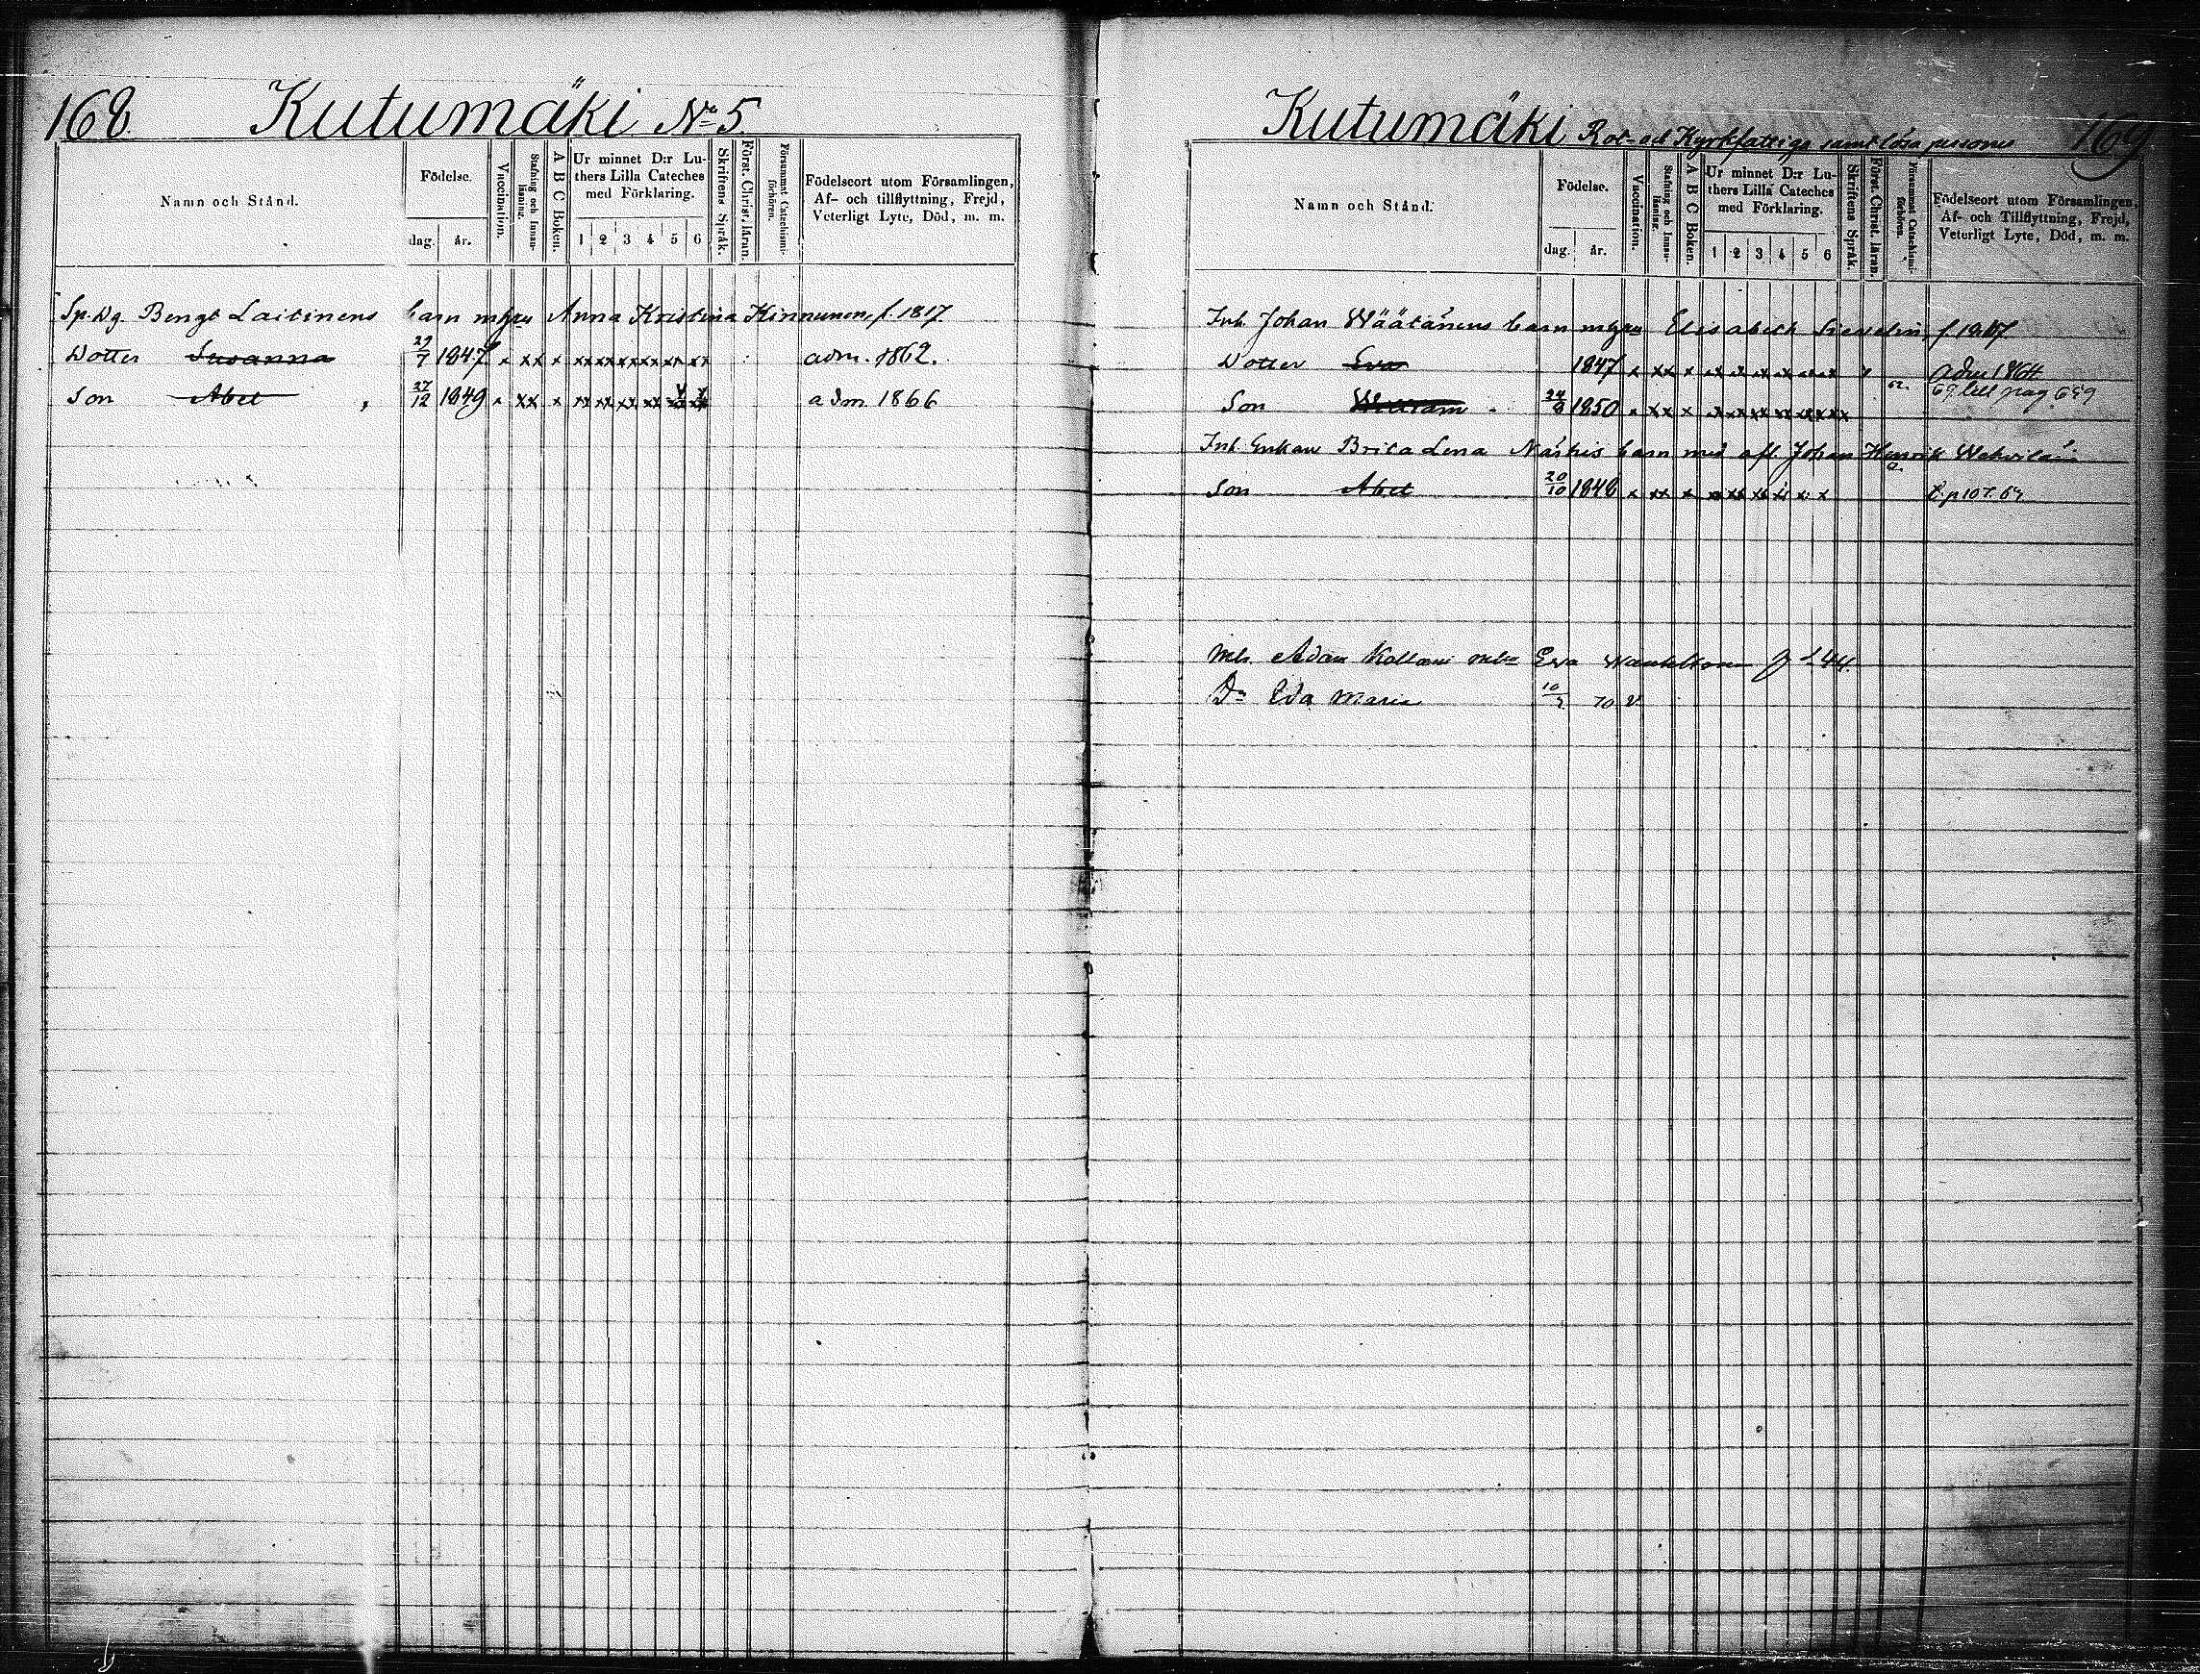 168.
Kutumäki No 5.
Namn och Stånd.
Födelse.
dag.
år.
Vaccination.
Stafning och Innanläsning.
A B C Boken.
Ur minnet D:r Luthers Lilla Cateches med Förklaring.
1 2 3 4 5 6
Skriftens Språk.
Först. Christ. läran.
Försummat Catechismiförhören.
Födelseort utom Församlingen, Af- och tillflyttning, Frejd, Veterligt Lyte, Död, m. m.
Sp. Dg. Bengt Laitinens barn m. hgru Anna Kristina Kinnunen, f. 1817.
Dotter Susanna 29/7 1847 x xx x xx xx xx xx xx xx adm. 1862.
Son Abel 27/12 1849 x xx x xx xx xx xx adm 1866
Kutumäki Rot- och Kyrkfattiga samt lösa personer
169
Namn och Stånd.
Födelse.
dag.
år.
Vaccination.
Stafning och Innanläsning.
A B C Boken.
Ur minnet D:r Luthers Lilla Cateches med Förklaring.
1 2 3 4 5 6
Skriftens Språk.
Först. Christ. läran.
Försummat Catechismiförhören.
Födelseort utom Församlingen, Af- och Tillflyttning, Frejd, Veterligt Lyte, Död, m. m.
Inh. Johan Wäätänens barn m. hgru Elisabeth
Dotter Eva 1847 x xx x xx x x x x x adm 1864
69 till pag 659
Son 1850 x xx x xx xx xx xx xx xx
Inh. Enkan Brita Lena barn med afl. Johan Henrik
Son Abel 20/10 1848 x xx x xx xx xx xx x x
Adam Eva 44.
Dr Eva Maria 70 v